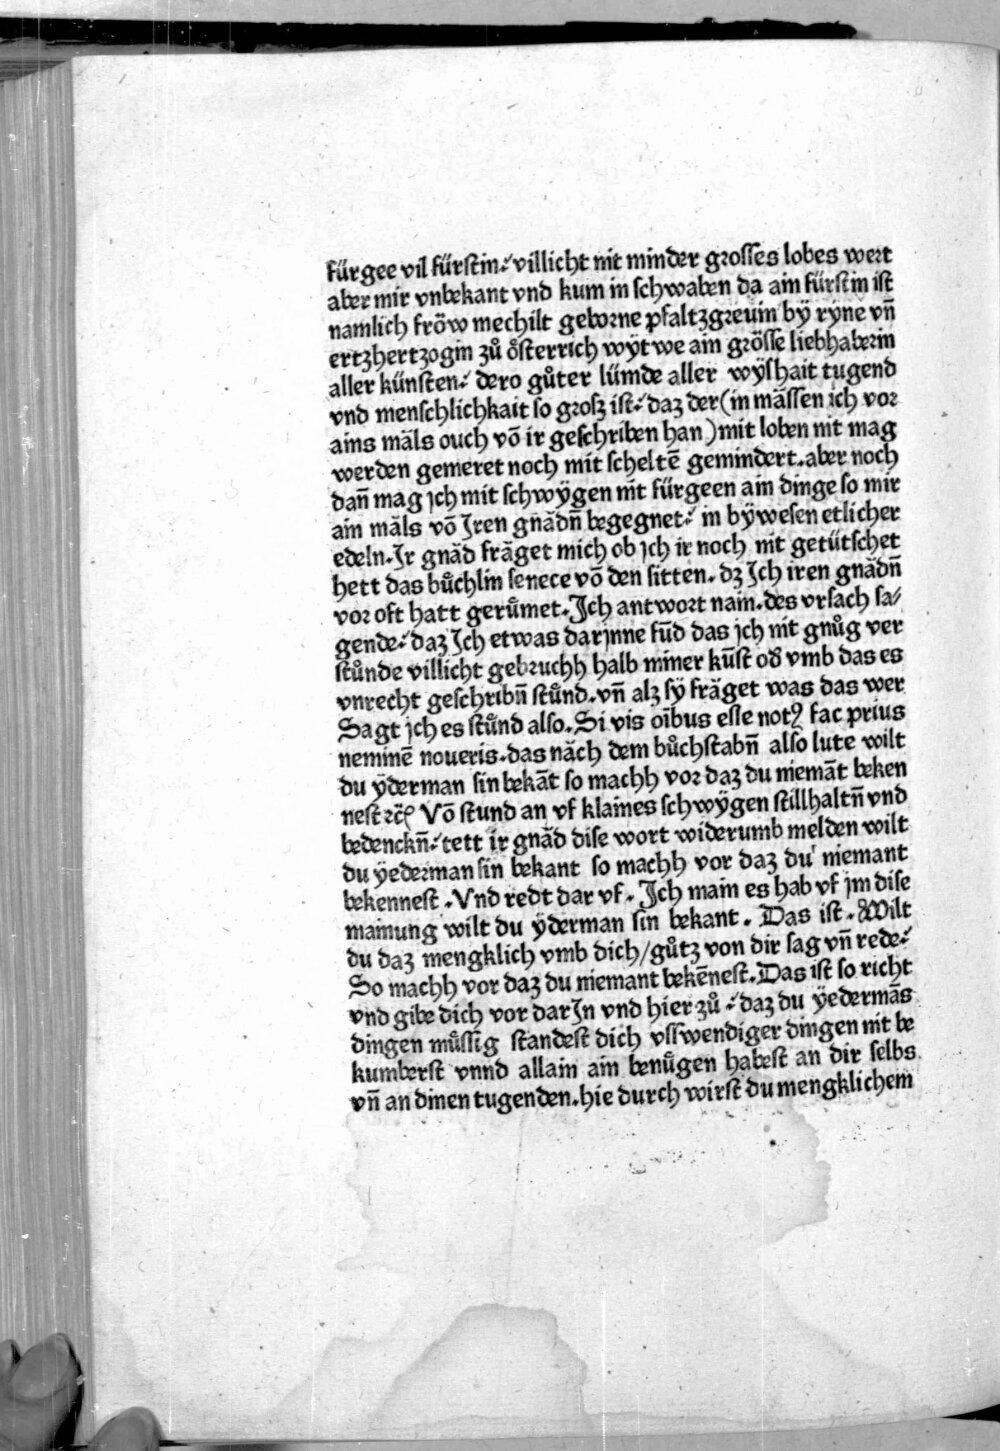 fürgee vil fürstin·⸍ villicht nit minder grosses lobes wert
aber mir vnbekant vnd kum in schwaben da ain fürstin ist
namlich fröw mechilt geborne pfaltzgreuin bÿ ryne vn̄
ertzhertzogin zů ősterrich wÿtwe ain grösse liebhaberin
aller künsten·⸍ dero gůter lümde aller wÿshait tugend
vnd menschlichkait so grosz ist·⸍ daz der (in mässen ich vor
ains mäls ouch vō ir geschriben han) mit loben nit mag
werden gemeret noch mit scheltē gemindert. aber noch
dan̄ mag ich mit schwÿgen nit fürgeen ain dinge so mir
ain mäls vō Iren gnädn̄ begegnet·⸍ in bÿwesen etlicher
edeln. Ir gnäd fräget mich ob ich ir noch nit getütschet
hett das bůchlin senece vō den sitten. dz Ich iren gnädn̄
vor oft hatt gerůmet. Ich antwort nain. des vrsach sa/
gende·⸍ daz Ich etwas darjnne fūd das ich nit gnůg ver
stůnde villicht gebruchh halb miner kūst od vmb das es
vnrecht geschribn̄ stůnd. vn̄ alz sÿ fräget was das wer
Sagt ich es stůnd also. Si vis oībus esse notꝰ fac prius
neminē noueris. das näch dem bůchstabn̄ also lute wilt
du ÿderman sin bekāt so machh vor daz du niemāt beken
nest ꝛc̄ Vō stund an vf klaines schwÿgen stillhaltn̄ vnd
bedenckn̄·⸍ tett ir gnäd dise wort widerumb melden wilt
du ÿederman sin bekant so machh vor daz du niemant
bekennest. Vnd redt dar vf. Ich main es hab vf jm dise
mainung wilt du ÿderman sin bekant. Das ist. Wilt
du daz mengklich vmb dich/gůtz von dir sag vn̄ rede·⸍
So machh vor daz du niemant bekēnest. Das ist so richt
vnd gibe dich vor darIn vnd hier zů·⸍ daz du ÿedermās
dingen můssig standest dich vsswendiger dingen nit be
kumberst vnnd allain ain benůgen habest an dir selbs
vn̄ an dinen tugenden. hie durch wirst du mengklichem